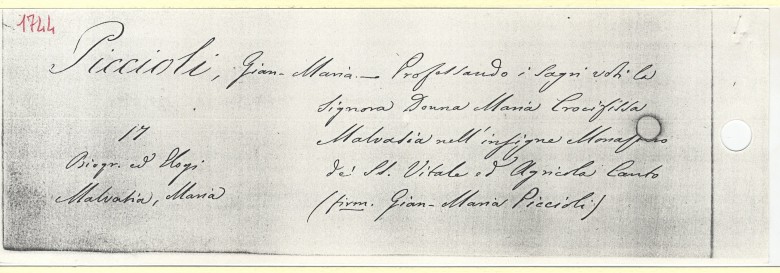 1744
Piccioli, Gian-Maria — Professando i sagri voti la
Signora Donna Maria Crocifissa
17
Malvasia nell'insigne Monastero
Biogr. ed Elogi
dei SS. Vitale ed Agricola Canto
Malvasia, Maria
(firm. Gian-Maria Piccioli)